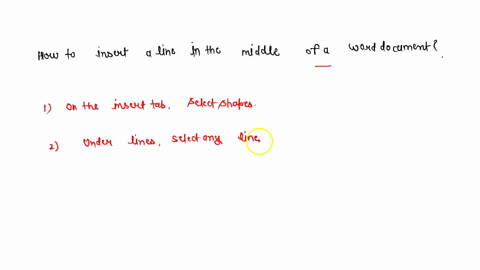 How to insert a line in the middle of a word document?
1) on the insert tab, select shapes.
2) Under lines, select any line